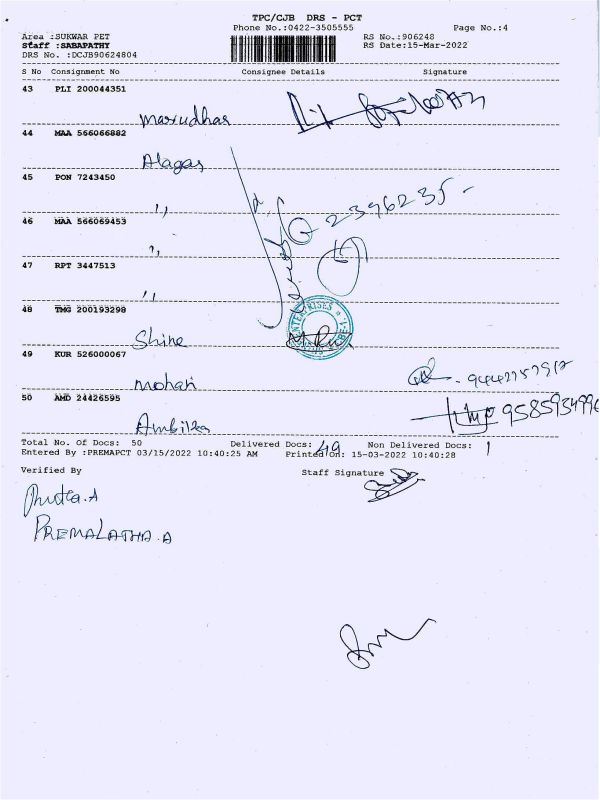 TPC/CJB DRS - PCT
Phone No.:0422-3505555 Page No.:4
Area :SUKWAR PET RS No.:906248
Staff :SABAPATHY RS Date:15-Mar-2022
DRS No. :DCJB90624804
S No Consignment No Consignee Details Signature
43 PLI 200044351
Marudhar
44 MAA 566066882
Alagar
45 PON 7243450
,,
2396235
46 MAA 566069453
,,
47 RPT 3447513
,,
48 TMG 200193298
ENTERPRISES
Shine
49 KUR 526000067
Mohan
50 AMD 24426595
9585954996
Ambika
Total No. Of Docs: 50 Delivered Docs: 49 Non Delivered Docs: 1
Entered By :PREMAPCT 03/15/2022 10:40:25 AM Printed On: 15-03-2022 10:40:28
Verified By Staff Signature
PREMALATHA.A